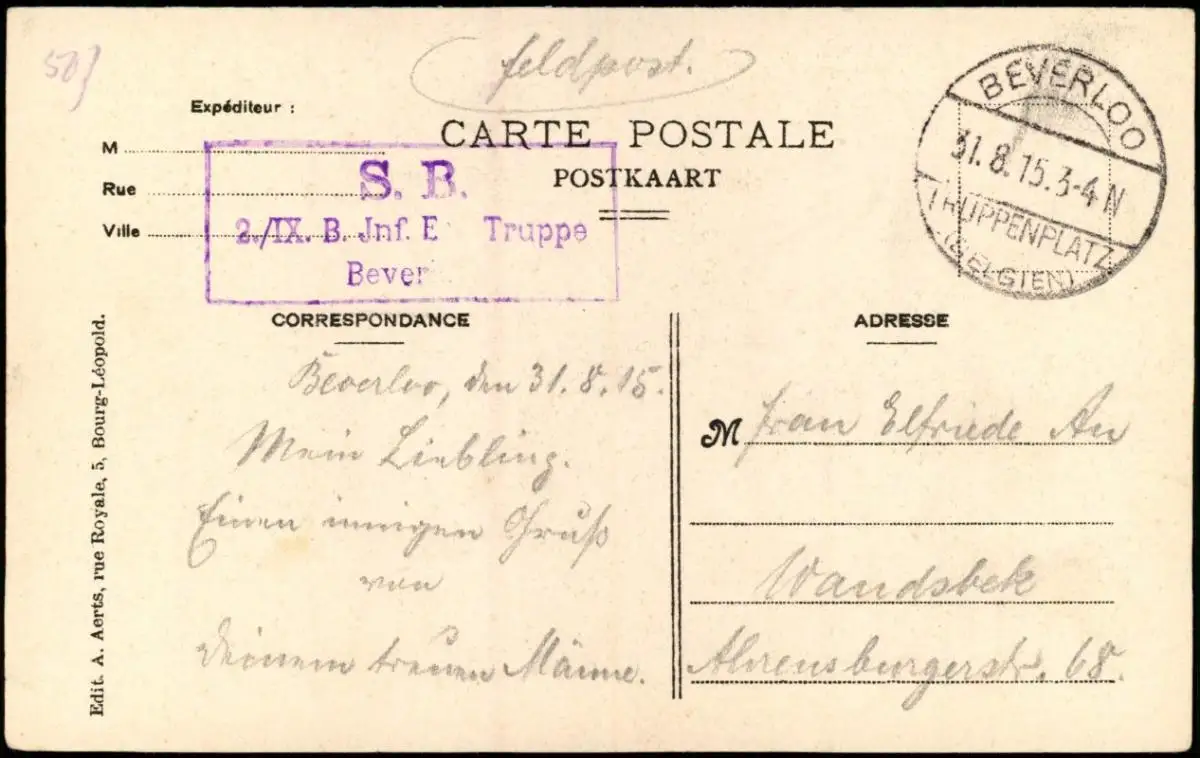 feldpost.
Expéditeur :
M
Rue
Ville
CARTE POSTALE
POSTKAART
S. B.
2./IX. B. Jnf. E Truppe
Bever
BEVERLOO
31.8.15.3-4 N
TRUPPENPLATZ
(BELGIEN)
CORRESPONDANCE
Beverloo, den 31.8.15.
Mein Liebling.
Einen innigen Gruß
von
Deinem treuen Männe.
ADRESSE
M Frau Elfriede An
Wandsbek
Ahrensburgerstr. 68.
Edit. A. Aerts, rue Royale, 5, Bourg-Léopold.